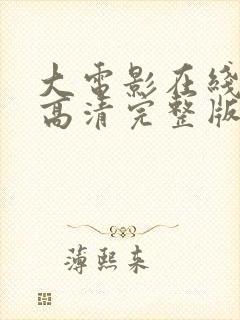 大电影在线
高清完整版
薄熙来